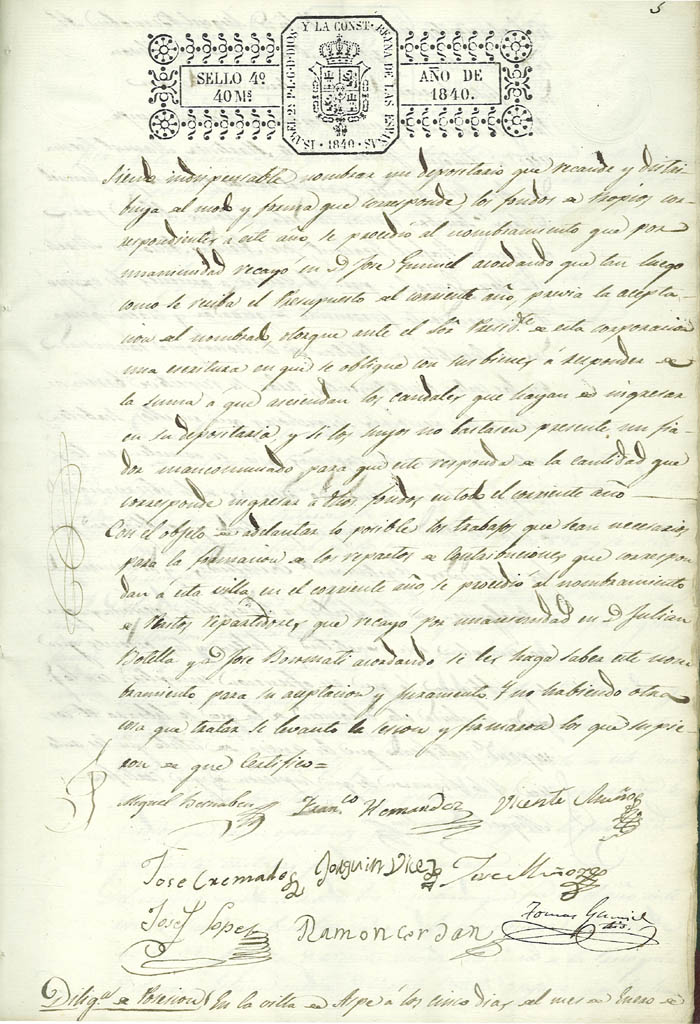 5
ISABEL 2ª P.L.G.D DIOS Y LA CONST. REYNA DE LAS ESPAÑAS
· 1840 ·
SELLO 4º
40 Ms.
AÑO DE
1840.
Siendo indispensable nombrar un depositario que recaude y distri-
buya al modo y forma que corresponde los fondos de Propios cor-
respondientes á este año, se procedió al nombramiento que por
unanimidad recayó en D. Jose Gumiel acordando que tan luego
como se reciba el Presupuesto del corriente año, previa la acepta-
cion del nombrado, otorgue ante el Sor. Presid.te de esta corporacion
una escritura en que se obligue con sus bienes á responder de
la suma á que asciendan los caudales que hayan de ingresar
en su depositaria, y si los suyos no bastaren presente un fia-
dor mancomunado para que este responda de la cantidad que
corresponde ingresar á dhos. fondos en todo el corriente año
Con el objeto de adelantar lo posible los trabajos que sean necesarios
para la formacion de los repartos de Contribuciones que correspon-
dan á esta villa en el corriente año se procedió al nombramiento
de repartidores, que recayó por unanimidad en D. Julian
Botella y D. Jose Bosmati acordando se les haga saber este nom-
bramiento para su aceptacion y juramento. Y no habiendo otra
cosa que tratar se levantó la sesion y firmaron los que supie-
ron de que Certifico =
Miguel Bernabeu Fran.co Hernandez Vicente Muñoz
Jose Cremades Joaquin Jose Muñoz
Josef Lopez Ramon Cerdan Tomas Gumiel
Dilig.a de Posesion En la villa de Aspe á los cinco dias del mes de Enero de